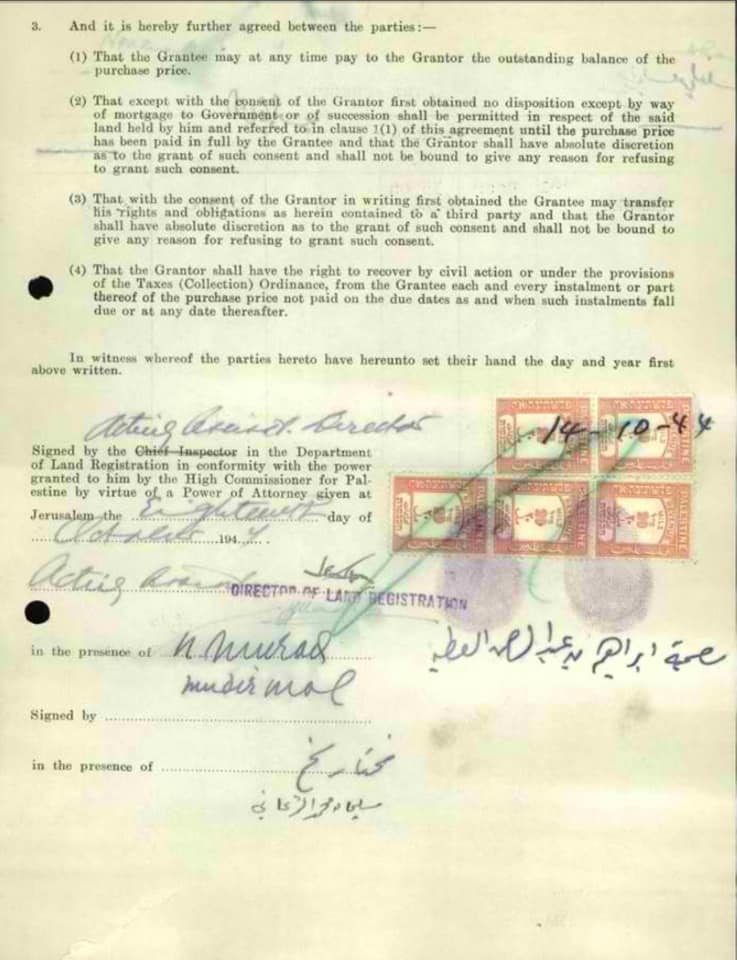 3. And it is hereby further agreed between the parties:—
(1) That the Grantee may at any time pay to the Grantor the outstanding balance of the
purchase price.
(2) That except with the consent of the Grantor first obtained no disposition except by way
of mortgage to Government or of succession shall be permitted in respect of the said
land held by him and referred to in clause 1(1) of this agreement until the purchase price
has been paid in full by the Grantee and that the Grantor shall have absolute discretion
as to the grant of such consent and shall not be bound to give any reason for refusing
to grant such consent.
(3) That with the consent of the Grantor in writing first obtained the Grantee may transfer
his rights and obligations as herein contained to a third party and that the Grantor
shall have absolute discretion as to the grant of such consent and shall not be bound to
give any reason for refusing to grant such consent.
(4) That the Grantor shall have the right to recover by civil action or under the provisions
of the Taxes (Collection) Ordinance, from the Grantee each and every instalment or part
thereof of the purchase price not paid on the due dates as and when such instalments fall
due or at any date thereafter.
In witness whereof the parties hereto have hereunto set their hand the day and year first
above written.
Acting Assist. Director
14-10-44
Signed by the Chief Inspector in the Department
of Land Registration in conformity with the power
granted to him by the High Commissioner for Pal-
estine by virtue of a Power of Attorney given at
Jerusalem the Eighteenth day of
October 194
PALESTINE
Acting
DIRECTOR OF LAND REGISTRATION
in the presence of N. Murad
Mudir Mal
ابراهيم
Signed by
in the presence of مختار